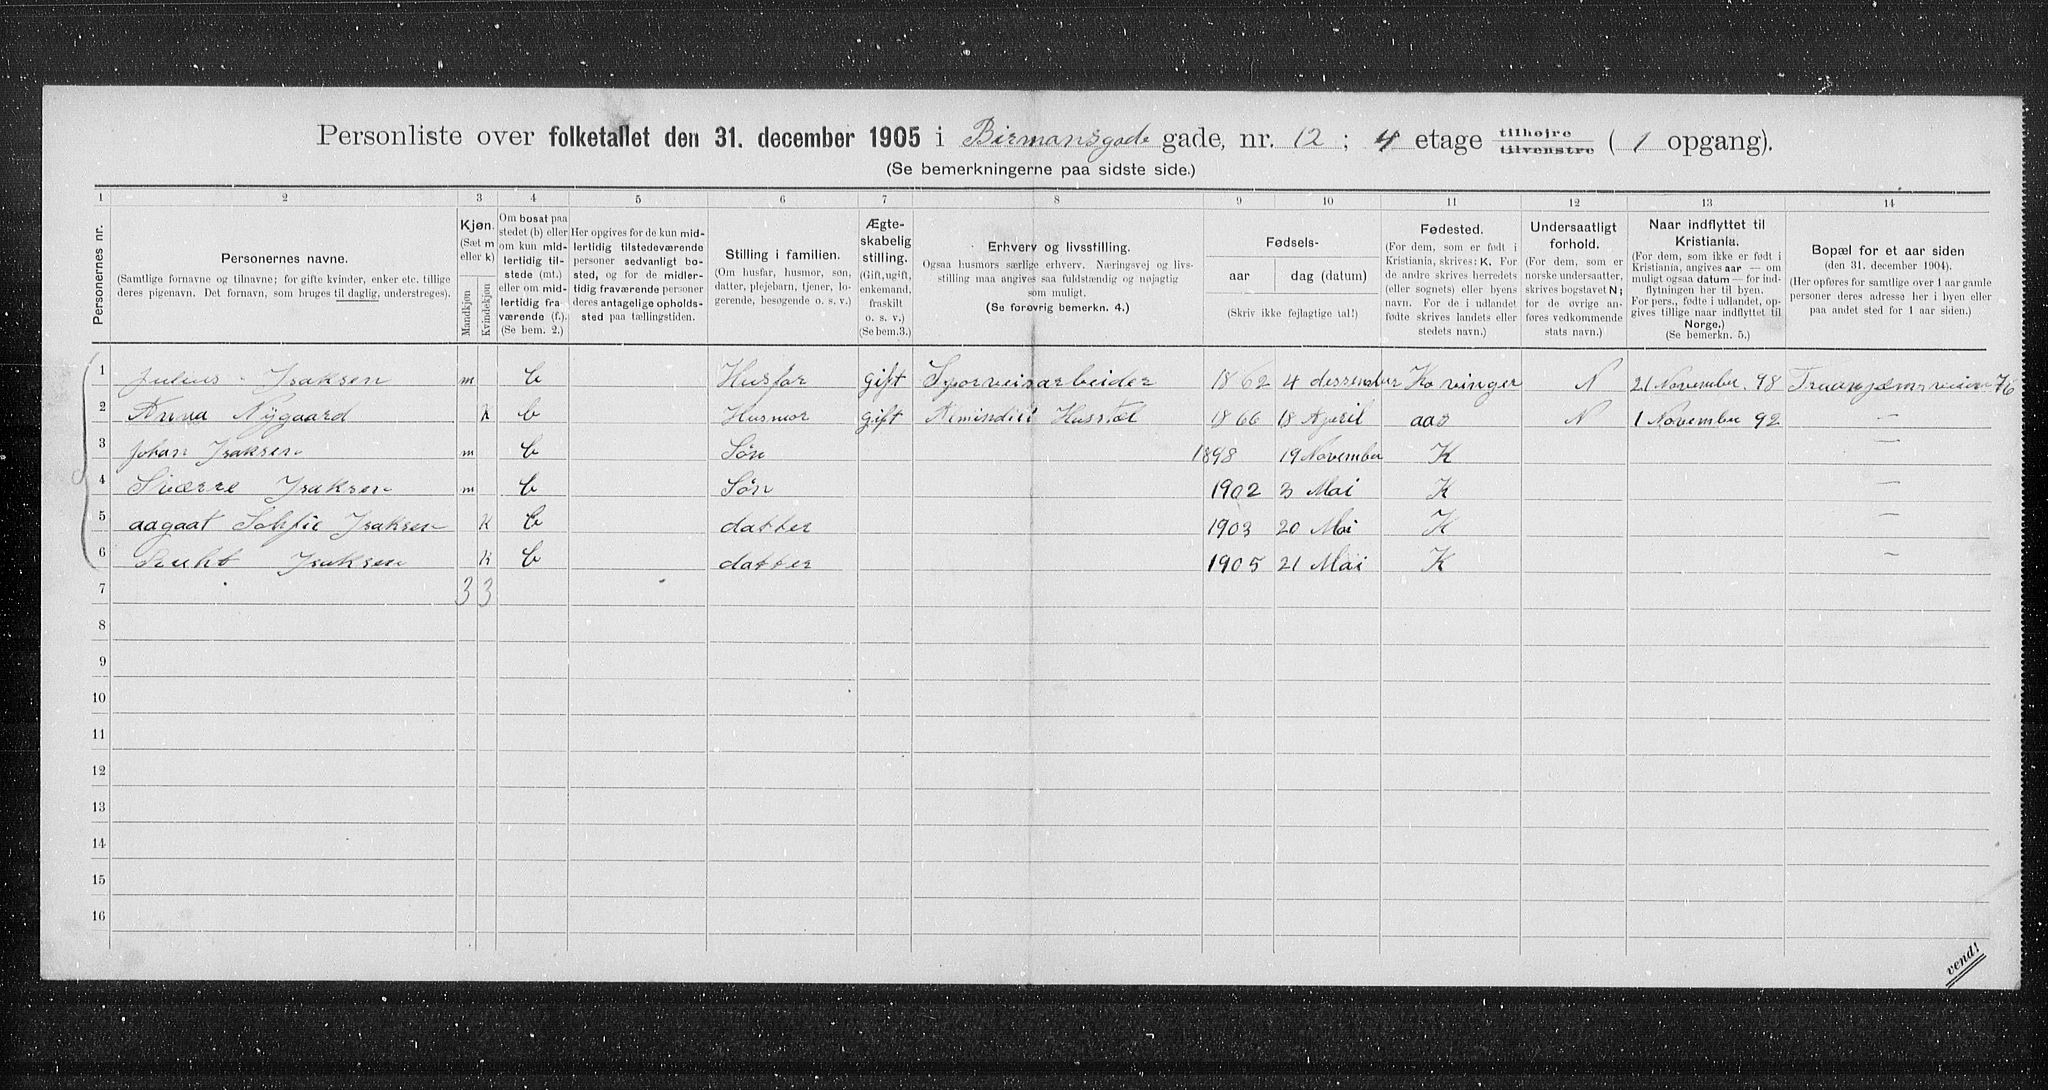 Personliste over folketallet den 31. december 1905 i Birmansgade gade, nr. 12 ; 4 etage tilhøjre tilvenstre ( 1 opgang).
(Se bemerkningerne paa sidste side.)
1 2 3 4 5 6 7 8 9 10 11 12 13 14
Personernes nr.
Personernes navne.
(Samtlige fornavne og tilnavne; for gifte kvinder, enker etc. tillige
deres pigenavn. Det fornavn, som bruges til daglig, understreges).
Kjøn.
(Sæt m
eller k)
Mandkjøn
Kvindekjøn
Om bosat paa
stedet (b) eller
om kun mid-
lertidig til-
stede (mt.)
eller om mid-
lertidig fra-
værende (f.).
(Se bem. 2.)
Her opgives for de kun mid-
lertidig tilstedeværende
personer sedvanligt bo-
sted, og for de midler-
tidig fraværende personer
deres antagelige opholds-
sted paa tællingstiden.
Stilling i familien.
(Om husfar, husmor, søn,
datter, plejebarn, tjener, lo-
gerende, besøgende o. s. v.)
Ægte-
skabelig
stilling.
(Gift, ugift,
enkemand,
fraskilt
o. s. v.)
(Se bem. 3.)
Erhverv og livsstilling.
Ogsaa husmors særlige erhverv. Næringsvej og livs-
stilling maa angives saa fuldstændig og nøjagtig
som muligt.
(Se forøvrig bemerkn. 4.)
Fødsels-
aar dag (datum)
(Skriv ikke fejlagtige tal!)
Fødested.
(For dem, som er født i
Kristiania, skrives: K. For
de andre skrives herredets
(eller sognets) eller byens
navn. For de i udlandet
fødte skrives landets eller
stedets navn.)
Undersaatligt
forhold.
(For dem, som er
norske undersaatter,
skrives bogstavet N;
for de øvrige an-
føres vedkommende
stats navn.)
Naar indflyttet til
Kristiania.
(For dem, som ikke er født i
Kristiania, angives aar — om
muligt ogsaa datum — for ind-
flytningen her til byen.
For pers., fødte i udlandet, op-
gives tillige naar indflyttet til
Norge.)
(Se bemerkn. 5.)
Bopæl for et aar siden
(den 31. december 1904).
(Her opføres for samtlige over 1 aar gamle
personer deres adresse her i byen eller
paa andet sted for 1 aar siden.)
1 Julius Isaksen m b Husfar gift Sporveisarbeider 1862 4 dessember Ko vinger N 21 November 98 Traanjemsveien 76
2 Anna Nygaard k b Husmor gift Almindeli Husstel 1866 18 April aas N 1 November 92 —
3 Johan Isaksen m b Søn 1898 19 November K —
4 Sværre Isaksen m b Søn 1902 3 Mai K —
5 aagaat Sohfie Isaksen k b datter 1903 20 Mai K —
6 Ruht Isaksen k b datter 1905 21 Mai K —
7 3 3
8
9
10
11
12
13
14
15
16
vend!